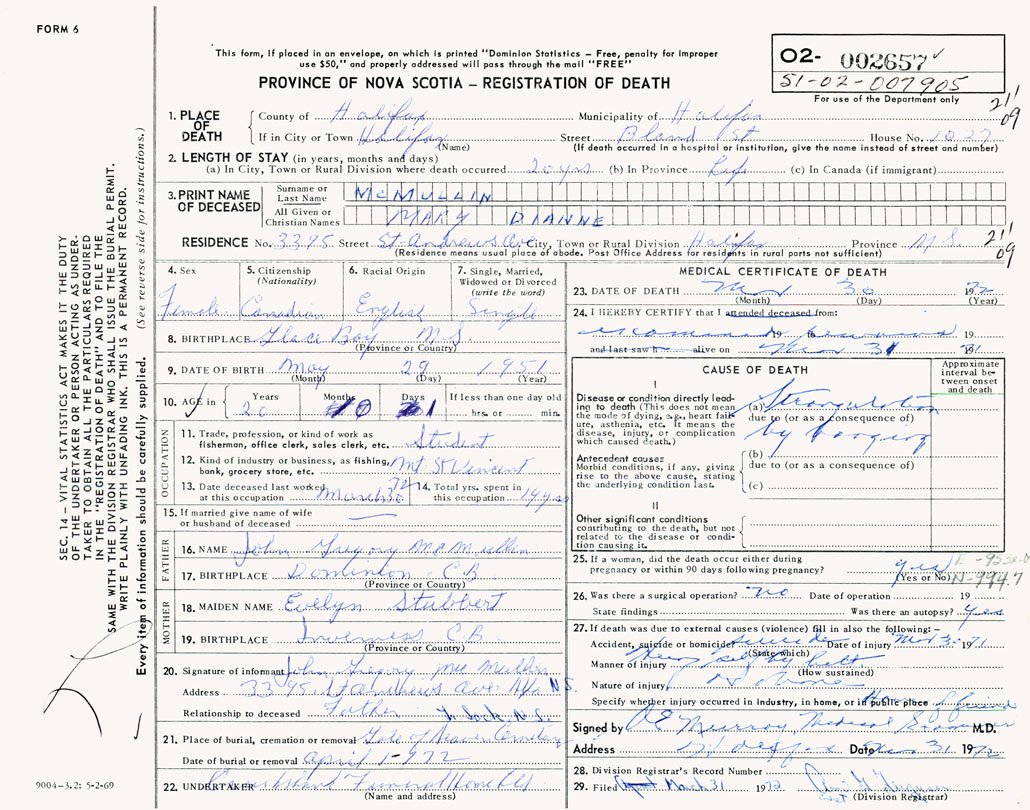 FORM 6
This form, if placed in an envelope, on which is printed "Dominion Statistics – Free, penalty for improper
use $50," and properly addressed will pass through the mail "FREE"
PROVINCE OF NOVA SCOTIA – REGISTRATION OF DEATH
02- 002657
51-02-007905
For use of the Department only
211
09
1. PLACE OF DEATH
County of Halifax Municipality of Halifax
If in City or Town Halifax Street Bland St House No. 1027
(Name) (If death occurred in a hospital or institution, give the name instead of street and number)
2. LENGTH OF STAY (in years, months and days)
(a) In City, Town or Rural Division where death occurred 20 yrs (b) In Province Life (c) In Canada (if immigrant)
3. PRINT NAME OF DECEASED
Surname or Last Name McMULLIN
All Given or Christian Names MARY DIANNE
RESIDENCE No. 3395 Street St. Andrews Ave City, Town or Rural Division Halifax Province N.S.
(Residence means usual place of abode. Post Office Address for residents in rural parts not sufficient)
211
09
4. Sex
Female
5. Citizenship (Nationality)
Canadian
6. Racial Origin
English
7. Single, Married, Widowed or Divorced (write the word)
Single
8. BIRTHPLACE Glace Bay N.S.
(Province or Country)
9. DATE OF BIRTH May 29 1951
(Month) (Day) (Year)
10. AGE in Years Months Days If less than one day old
20 10 1 hrs. or min.
OCCUPATION
11. Trade, profession, or kind of work as
fisherman, office clerk, sales clerk, etc. Student
12. Kind of industry or business, as fishing,
bank, grocery store, etc. Mt St Vincent
13. Date deceased last worked
at this occupation March 30 72
14. Total yrs. spent in
this occupation 14 yrs
15. If married give name of wife
or husband of deceased
FATHER
16. NAME John Gregory McMullin
17. BIRTHPLACE Dominion C.B
(Province or Country)
MOTHER
18. MAIDEN NAME Evelyn Stubbert
19. BIRTHPLACE Inverness C.B
(Province or Country)
20. Signature of informant John Gregory McMullin
Address 3395 St Andrews Ave Hfx N.S.
Relationship to deceased Father
21. Place of burial, cremation or removal Gate of Heaven Cemetery
Date of burial or removal April 1-972
22. UNDERTAKER Funeral Home Ltd
(Name and address)
MEDICAL CERTIFICATE OF DEATH
23. DATE OF DEATH Mar 30 1972
(Month) (Day) (Year)
24. I HEREBY CERTIFY that I attended deceased from:
19 to 19
and last saw h alive on Mar 31 19
CAUSE OF DEATH
Approximate interval between onset and death
I
Disease or condition directly leading
to death (This does not mean
the mode of dying, e.g., heart failure,
asthenia, etc. It means the
disease, injury, or complication
which caused death.)
(a) Strangulation
due to (or as a consequence of)
by hanging
Antecedent causes
Morbid conditions, if any, giving
rise to the above cause, stating
the underlying condition last.
(b)
due to (or as a consequence of)
(c)
II
Other significant conditions
contributing to the death, but not
related to the disease or condition
causing it.
25. If a woman, did the death occur either during
pregnancy or within 90 days following pregnancy?
(Yes or No)
N-9947
26. Was there a surgical operation? no Date of operation 19
State findings Was there an autopsy? yes
27. If death was due to external causes (violence) fill in also the following:–
Accident, suicide or homicide? suicide Date of injury Mar 30 71
(State which)
Manner of injury Hung self by belt
(How sustained)
Nature of injury as above
Specify whether injury occurred in industry, in home, or in public place Home of friend
Signed by Murray Medical Examiner M.D.
Address Halifax Date Mar 31 1972
28. Division Registrar's Record Number
29. Filed March 31 1972
(Division Registrar)
SEC. 14 – VITAL STATISTICS ACT MAKES IT THE DUTY
OF THE UNDERTAKER OR PERSON ACTING AS UNDER-
TAKER TO OBTAIN ALL THE PARTICULARS REQUIRED
IN THE "REGISTRATION OF DEATH" AND TO FILE THE
SAME WITH THE DIVISION REGISTRAR WHO SHALL ISSUE THE BURIAL PERMIT.
WRITE PLAINLY WITH UNFADING INK. THIS IS A PERMANENT RECORD.
Every item of information should be carefully supplied. (See reverse side for instructions.)
9004-3.2: 5-2-69